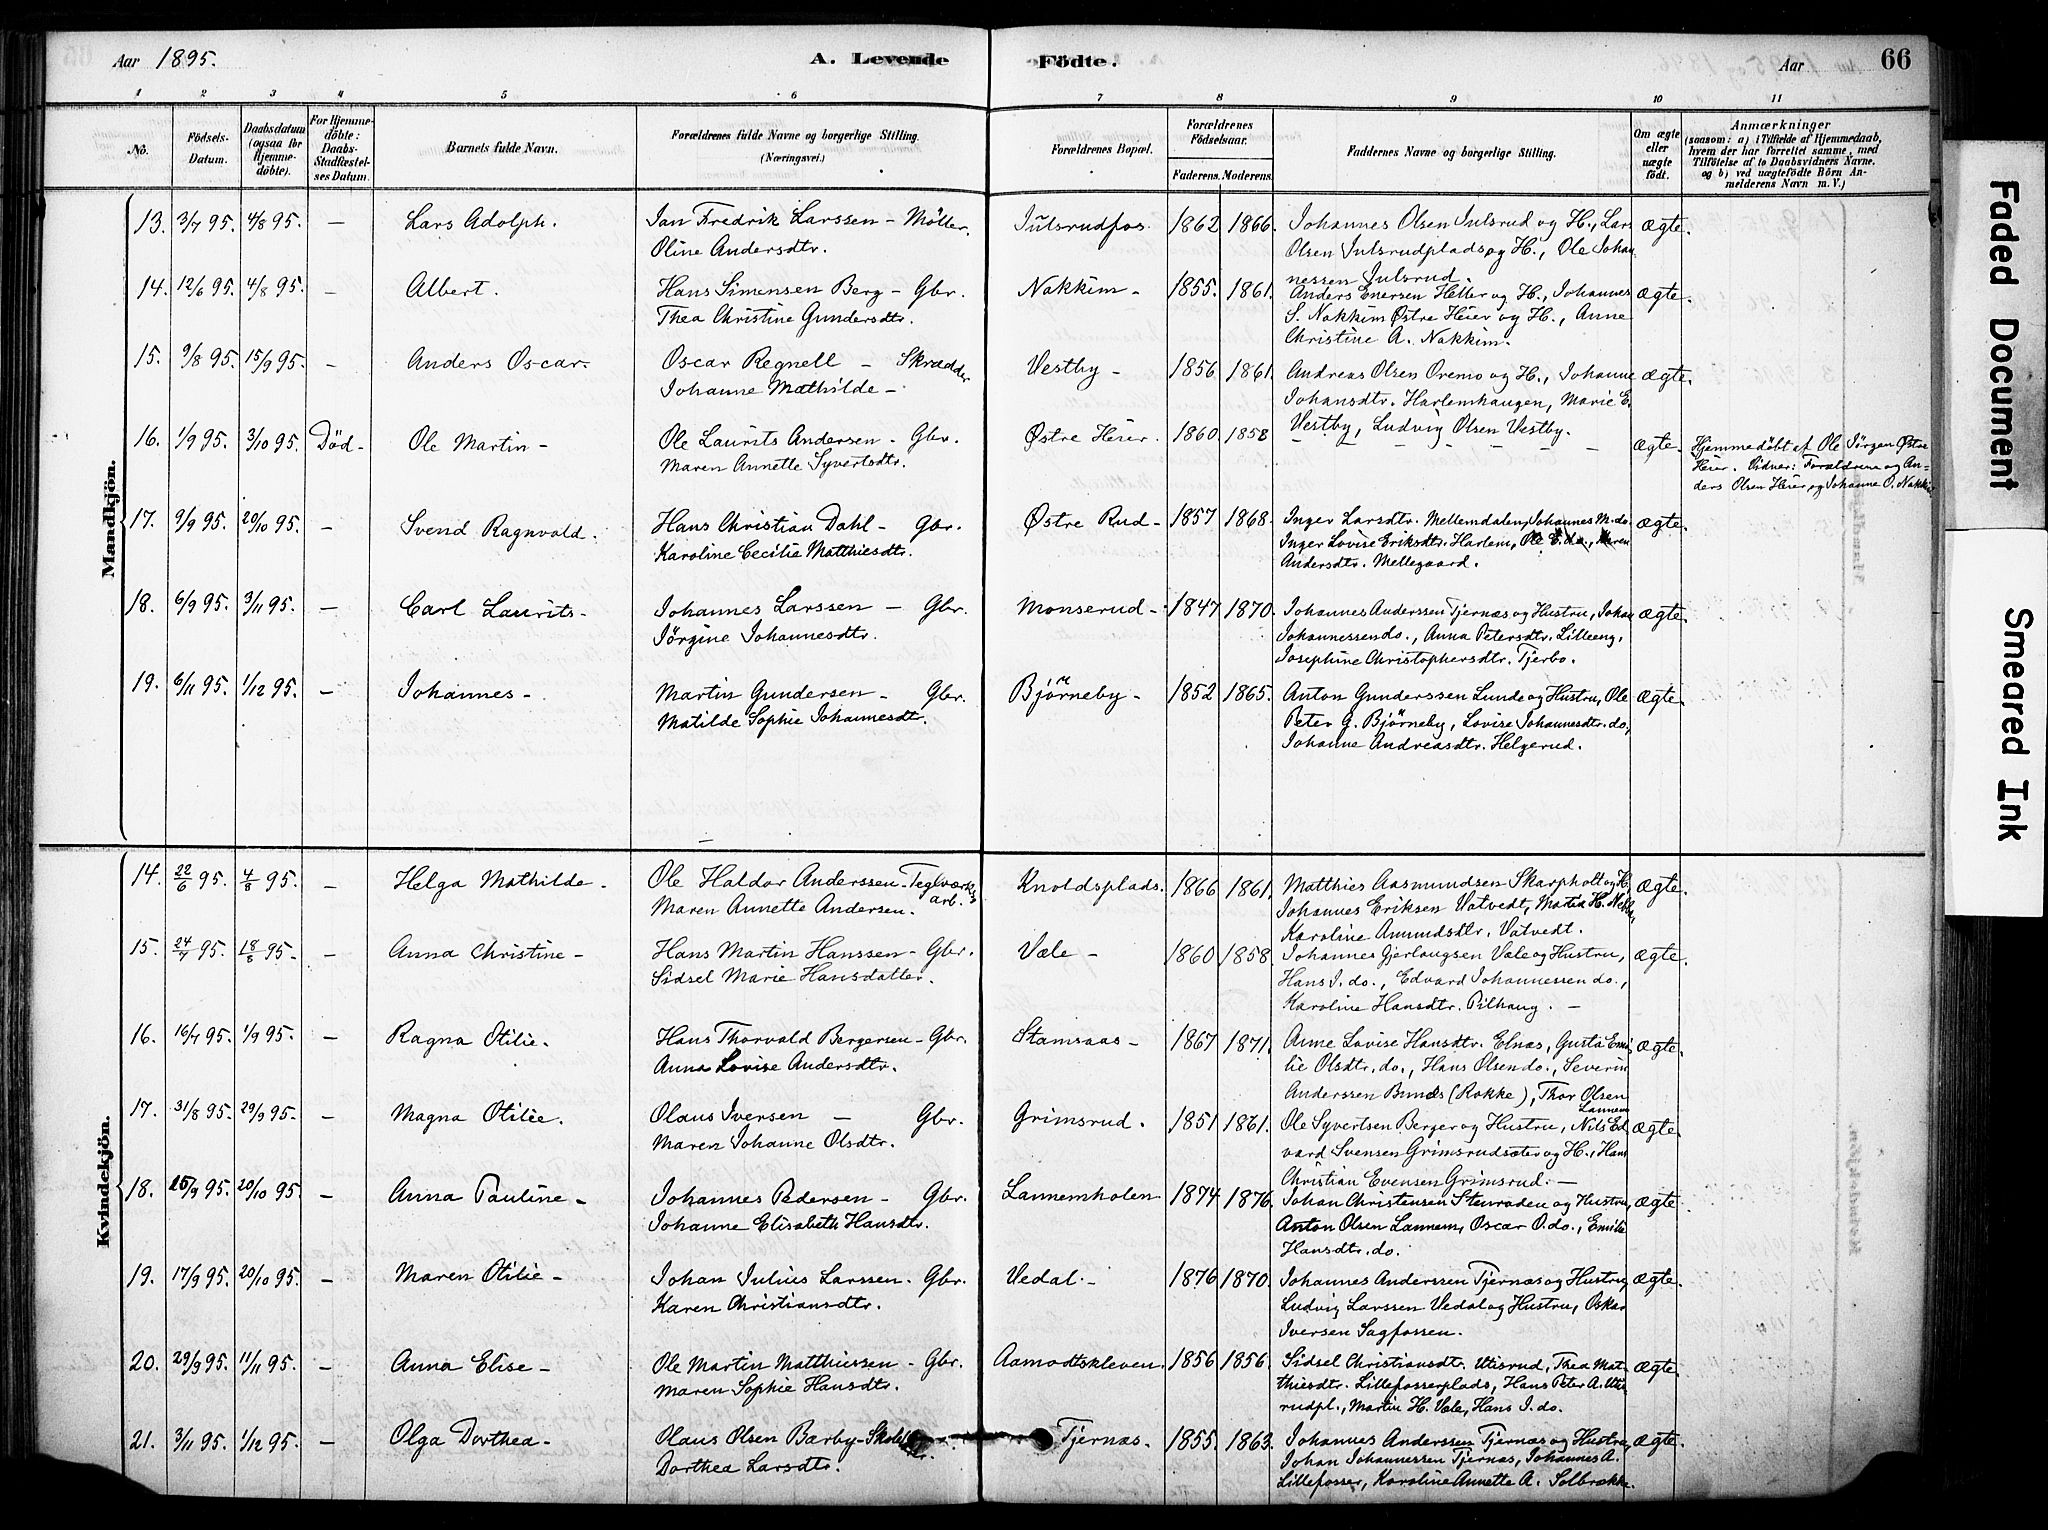 Aar 1895.
A. Levende Födte.
Aar
66
1 2 3 4 5 6 7 8 9 10 11
No.
Födsels-
Datum.
Daabsdatum
(ogsaa for
Hjemme-
döbte).
For Hjemme-
döbte:
Daabs-
Stadfæstel-
ses Datum.
Barnets fulde Navn.
Forældrenes fulde Navne og borgerlige Stilling.
(Næringsvei.)
Forældrenes Bopæl.
Forældrenes
Födselsaar.
Faderens. Moderens.
Faddernes Navne og borgerlige Stilling.
Om ægte
eller
uægte
födt.
Anmærkninger
(saasom: a) i Tilfælde af Hjemmedaab,
hvem der har forrettet samme, med
Tilföielse af to Daabsvidners Navne.
og b) ved uægtefödte Börn An-
melderens Navn m. V.)
Mandkjön.
13. 3/7 95. 4/8 95. – Lars Adolph. Jan Fredrik Larssen – Møller. Julsrudfos. 1862 1866. Johannes Olsen Julsrud og H., Lars ægte.
Oline Andersdtr. Olsen Julsrudplads og H., Ole Johan
nessen Julsrud.
14. 12/6 95. 4/8 95. – Albert. Hans Simensen Berg – Gbr. Nakkim – 1855. 1861. Anders Enersen Heller og H., Johannes ægte.
Thea Christine Gundersdtr. S. Nakkim Østre Heier og H., Anne
Christine A. Nakkim.
15. 9/8 95. 15/9 95. – Anders Oscar – Oscar Regnell – Skrædder Vestby – 1856 1861. Andreas Olsen Oremo og H., Johanne ægte.
Johanne Mathilde – Johansdtr. Harlemhaugen, Marie E.
Vestby, Ludvig Olsen Vestby.
16. 1/9 95. 3/10 95. Død – Ole Martin – Ole Laurits Andersen – Gbr. Østre Heier. 1860. 1858 – – – – – ægte. Hjemmedöbt af Ole Jörgen Østre
Maren Annette Syvertsdtr. Heier. Vidner: Forældrene og An-
ders Olsen Heier og Johanne O. Nakkim
17. 9/9 95. 20/10 95. – Svend Ragnvald. Hans Christian Dahl – Gbr. Østre Rud – 1857 1868. Inger Larsdtr. Mellemdalen, Johannes M. do. ægte.
Karoline Cecilie Matthiesdtr. Inger Lovise Eriksdtr. Harlem, Ole E. do., Maren
Andersdtr. Mellegaard.
18. 6/9 95. 3/11 95. – Carl Laurits – Johannes Larssen – Gbr. Monserud – 1847 1870. Johannes Anderssen Tjernæs og Hustru, Johan ægte.
Jörgine Johannesdtr. Johannessen do., Anna Petersdtr. Lilleeng,
Josephine Christophersdtr. Tjerbo.
19. 6/11 95. 1/12 95. – Johannes – Martin Gundersen – Gbr. Bjørneby – 1852 1865. Anton Gunderssen Lunde og Hustru, Ole ægte.
Matilde Sophie Johannesdtr. Peter G. Bjørneby, Lovise Johannesdtr. do.,
Johanne Andreasdtr. Helgerud.
Kvindekjön.
14. 22/6 95. 4/8 95. – Helga Mathilde. Ole Haldor Anderssen – Teglværks Knoldsplads. 1866 1861. Matthies Aasmundsen Skarpholt og H. ægte.
Maren Annette Andersen. arb. Johannes Eriksen Vatvedt, Martea H.
Karoline Amundsdtr. Vatvedt.
15. 24/7 95. 18/8 95. – Anna Christine – Hans Martin Hanssen – Gbr. Væle – 1860 1858 Johannes Gjerlaugsen Væle og Hustru, ægte.
Sidsel Marie Hansdatter. Hans J. do., Edvard Johannessen do.,
Karoline Hansdtr. Pilhaug. –
16. 16/7 95. 1/9 95. – Ragna Otilie. Hans Thorvald Bergersen – Gbr. Stamsaas – 1867 1871. Anne Lovise Hansdtr. Elnæs, Gusta Emi ægte.
Anna Lovise Andersdtr. lie Olsdtr. do., Hans Olsen do., Severin
Anderssen Bunæs (Rokke), Thor Olsen
Lannem
17. 31/8 95. 29/9 95. – Magna Otilie. Olaus Iversen – Gbr. Grimsrud. 1851 1861. Ole Syvertsen Berger og Hustru, Nils Ed ægte.
Maren Johanne Olsdtr. vard Svensen Grimsrudsæter og H., Hans
Christian Evensen Grimsrud. –
18. 15/9 95. 20/10 95. – Anna Pauline – Johannes Pedersen – Gbr. Lannemholen 1874 1876. Johan Christensen Stenraden og Hustru, ægte.
Johanne Elisabeth Hansdtr. Anton Olsen Lannem, Oscar O. do., Emilie
Hansdtr. do.
19. 17/9 95. 20/10 95. – Maren Otilie – Johan Julius Larssen – Gbr. Vedal. – 1876 1870. Johannes Anderssen Tjernæs og Hustru, ægte.
Karen Christiansdtr. Ludvig Larssen Vedal og Hustru, Oskar
Iversen Sagfossen.
20. 29/9 95. 11/11 95. – Anna Elise – Ole Martin Matthiessen – Gbr. Aamodtskleven. 1856 1856. Sidsel Christiansdtr. Utisrud, Thea Mat- ægte.
Maren Sophie Hansdtr. thiesdtr. Lillefosserplads, Hans Peter A. Utis
rudpl., Martin H. Væle, Hans J. do.
21. 3/11 95. 1/12 95. – Olga Dorthea – Olaus Olsen Bærby – Tjernæs – 1855. 1863. Johannes Anderssen Tjernæs og Hustru, ægte.
Dorthea Larsdtr. Johan Johannessen Tjernæs, Johannes A.
Lillefosser, Karoline Annette A. Solbrække.
Faded Document
Smeared Ink